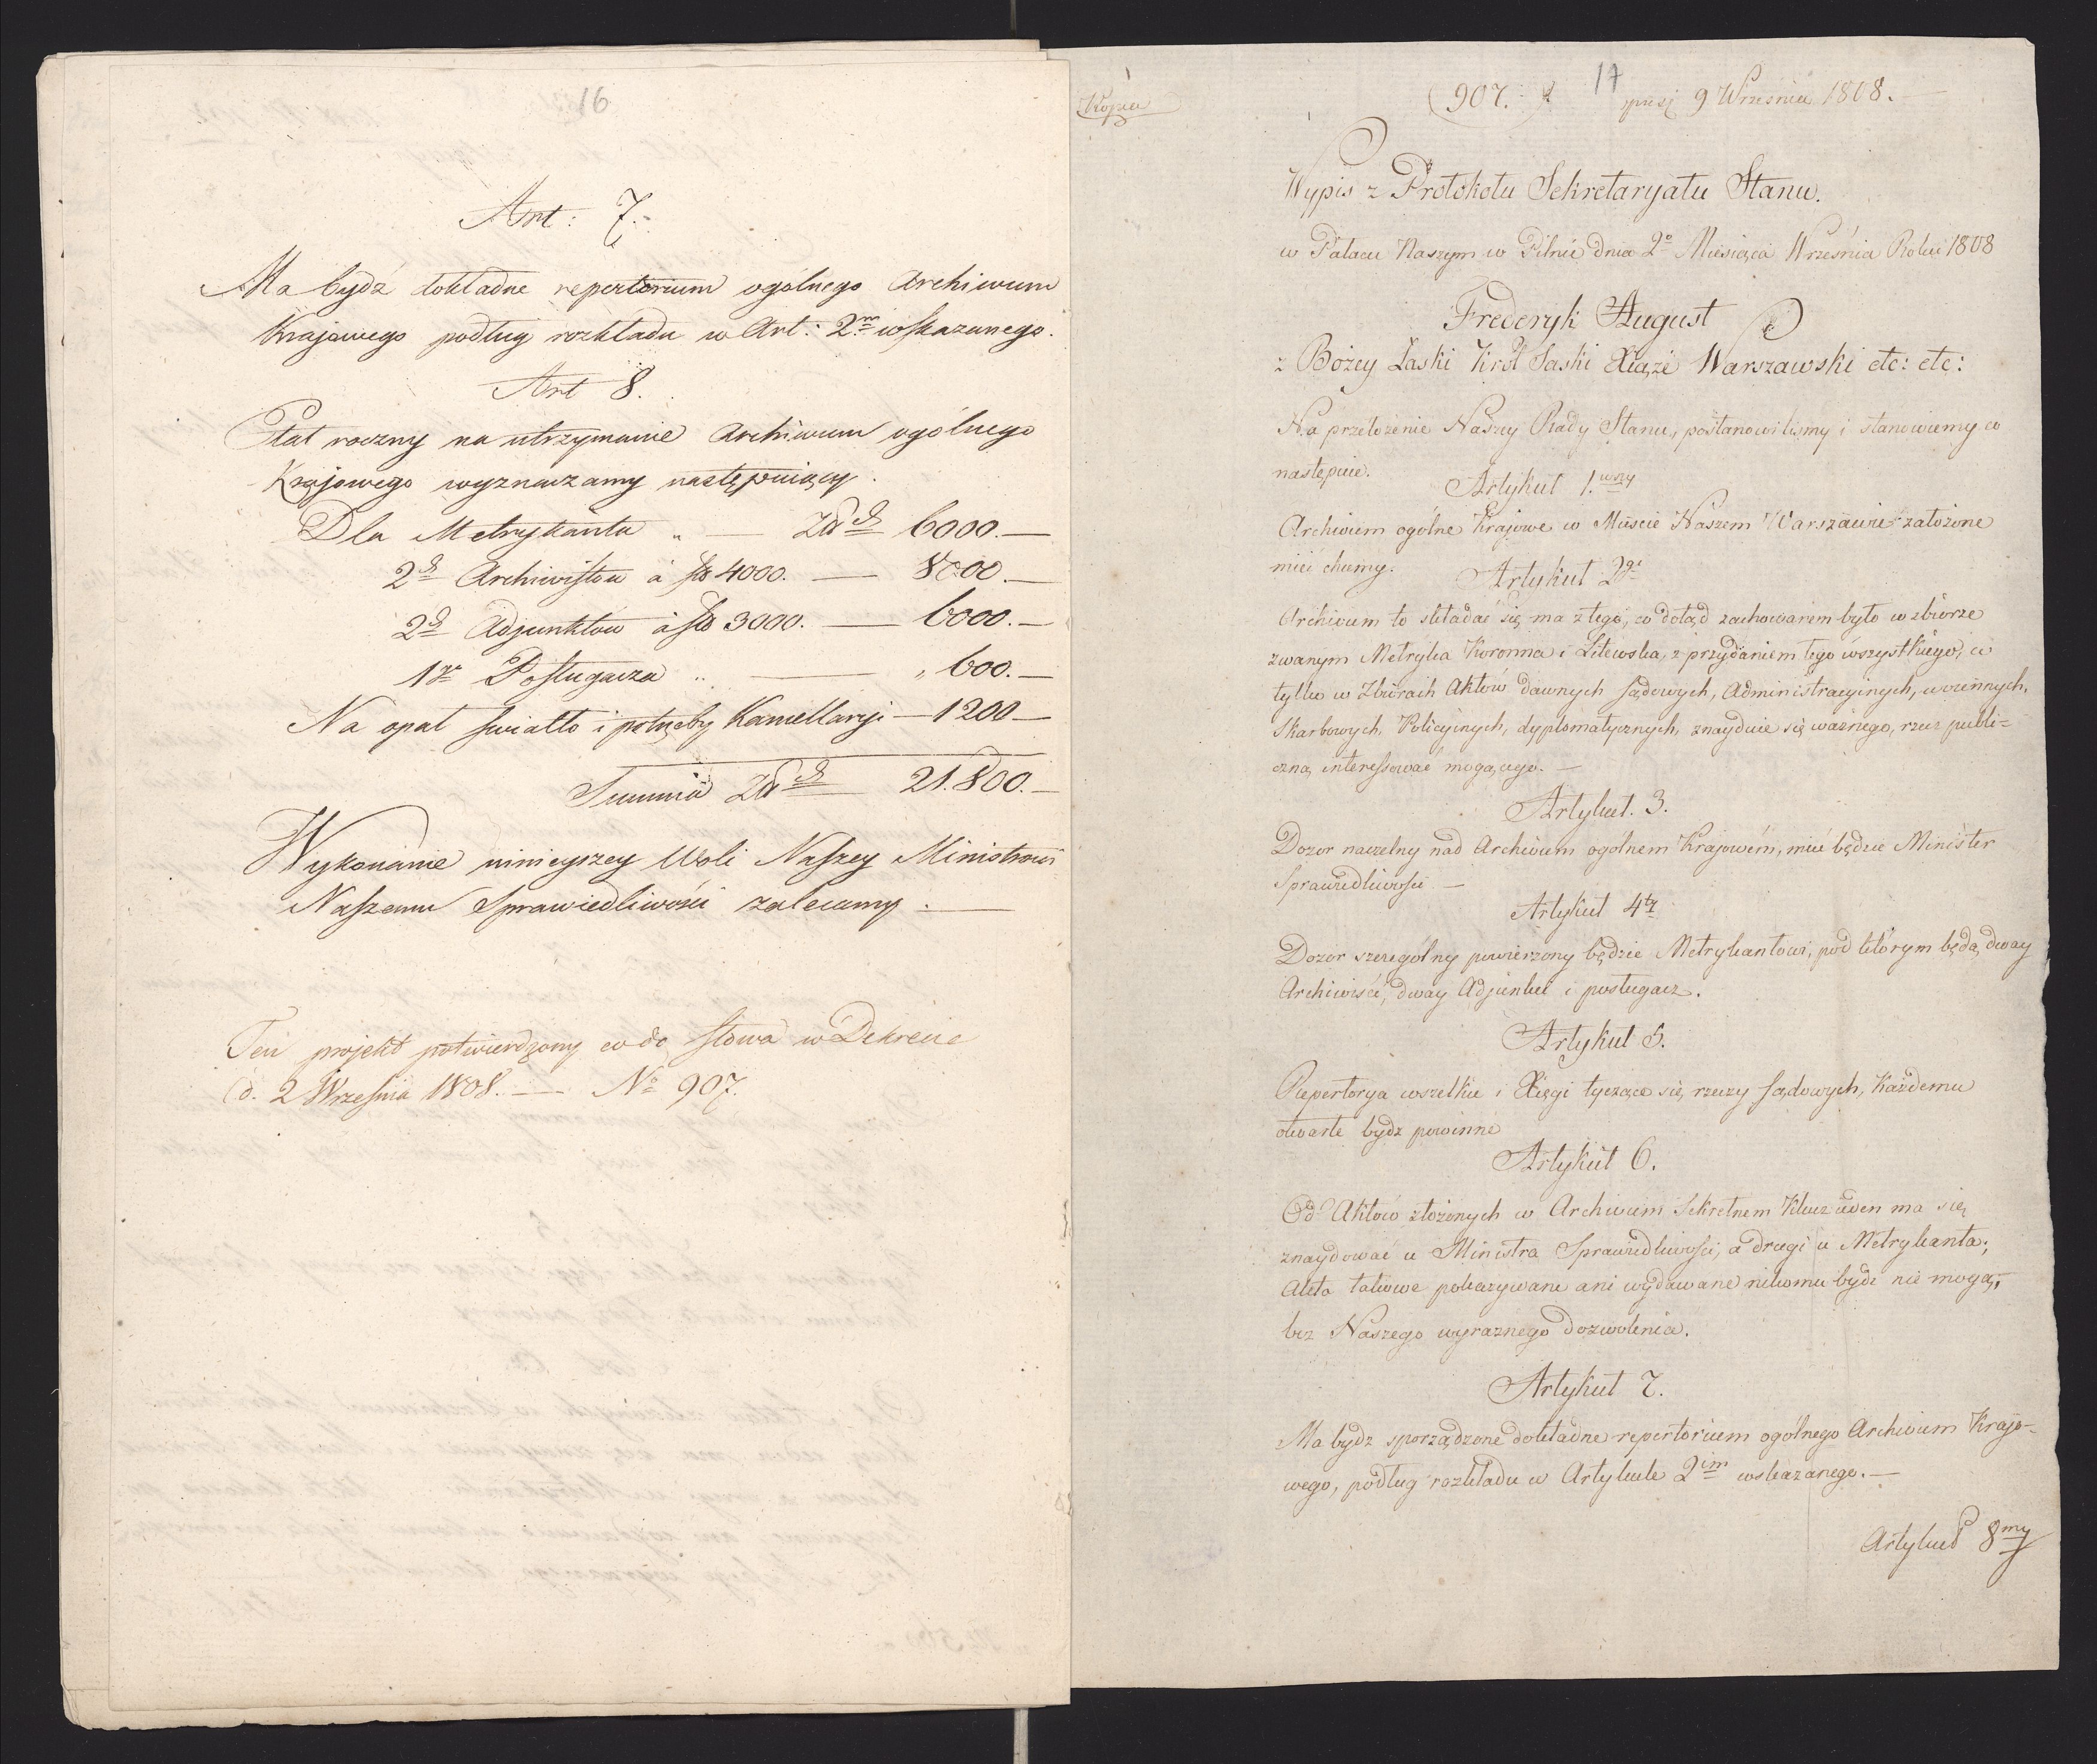 16
Art: 7.
Ma bydź dokładne repertorium ogólnego Archiwum
Krajowego podług rozkładu w Art: 2m wskazanego.
Art 8.
Etat roczny na utrzymanie Archiwum ogólnego
Krajowego wyznaczamy następuiący.
Dla Metrykanta „ — Złł 6000.—
2ch Archiwistow à fl 4000. — 8000.—
2ch Adjunktow à fl 3000. — 6000.—
1go Posługacza „ — „ 600.—
Na opał swiatło i potrzeby Kancellaryi — 1200 —
Summa Złł 21.800.—
Wykonanie ninieyszey Woli Naszey Ministrowi
Naszemu Sprawiedliwości zalecamy.—
Ten projekt potwierdzony co do słowa w Dekrecie
d. 2 Września 1808.— No 907.
Kopia
17
(907.) 9 Września 1808.—
Wypis z Protokołu Sekretaryatu Stanu.
w Pałacu Naszym w Pilnic dnia 2o Miesiąca Września Roku 1808
Fryderyk August
z Bożey Łaski Król Saski Xiąże Warszawski etc: etc:
Na przełożenie Naszey Rady Stanu, postanowiliśmy i stanowiemy co
następuie.
Artykuł 1.wszy
Archiwum ogólne Krajowe w Mieście Naszem Warszawie założone
mieć chcemy.
Artykuł 2gi
Archiwum to składać się ma z tego, co dotąd zachowanem było w zbiorze
zwanym Metryka Koronna i Litewska, z przydaniem tego wszystkiego, co
tylko w Zbiorach Aktów dawnych sądowych, Administracyinych, woiennych,
Skarbowych, Policyinych, dyplomatycznych, znayduie się ważnego, rzecz publi=
czną interessować mogącego.—
Artykuł. 3.
Dozor naczelny nad Archiwum ogólnem Krajowém, mieć będzie Minister
Sprawiedliwości.—
Artykuł 4ty
Dozor szczególny powierzony będzie Metrykantowi, pod którym będą dway
Archiwiści, dway Adjunkci i posługacz.
Artykuł 5.
Repertorya wszelkie i Xięgi tyczące się rzeczy sądowych, każdemu
otwarte bydz powinne
Artykuł 6.
Od Aktów złożonych w Archiwum Sekretnem Klucz ieden ma się
znaydować u Ministra Sprawiedliwości, a drugi u Metrykanta;
Akta takowe pokazywane ani wydawane nikomu bydz nie mogą,
bez Naszego wyraznego dozwolenia.
Artykuł 7.
Ma bydz sporządzone dokładne repertorium ogólnego Archiwum Krajo=
wego, podług rozkładu w Artykule 2im wskazanego.—
Artykuł 8my